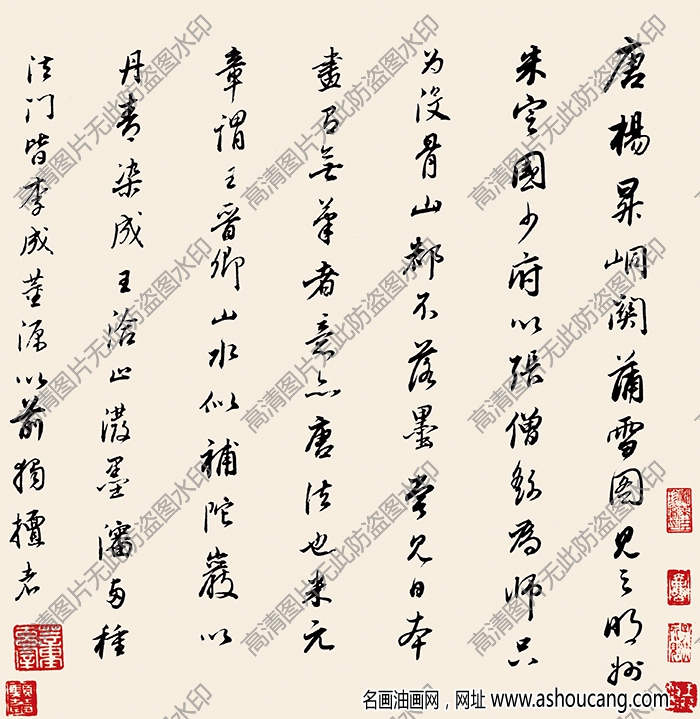 唐楊昇峒関蒲雪图見之明州
朱定國少府以張僧繇為師只
为没骨山都不落墨嘗見日本
畫有無筆者意亦唐法也米元
章謂王晉卿山水似補陀巖以
丹青染成王洽止潑墨瀋与種
法门皆李成董源以前獨擅者
高清图片无此防盗图水印
名画油画网，网址 www.ashoucang.com